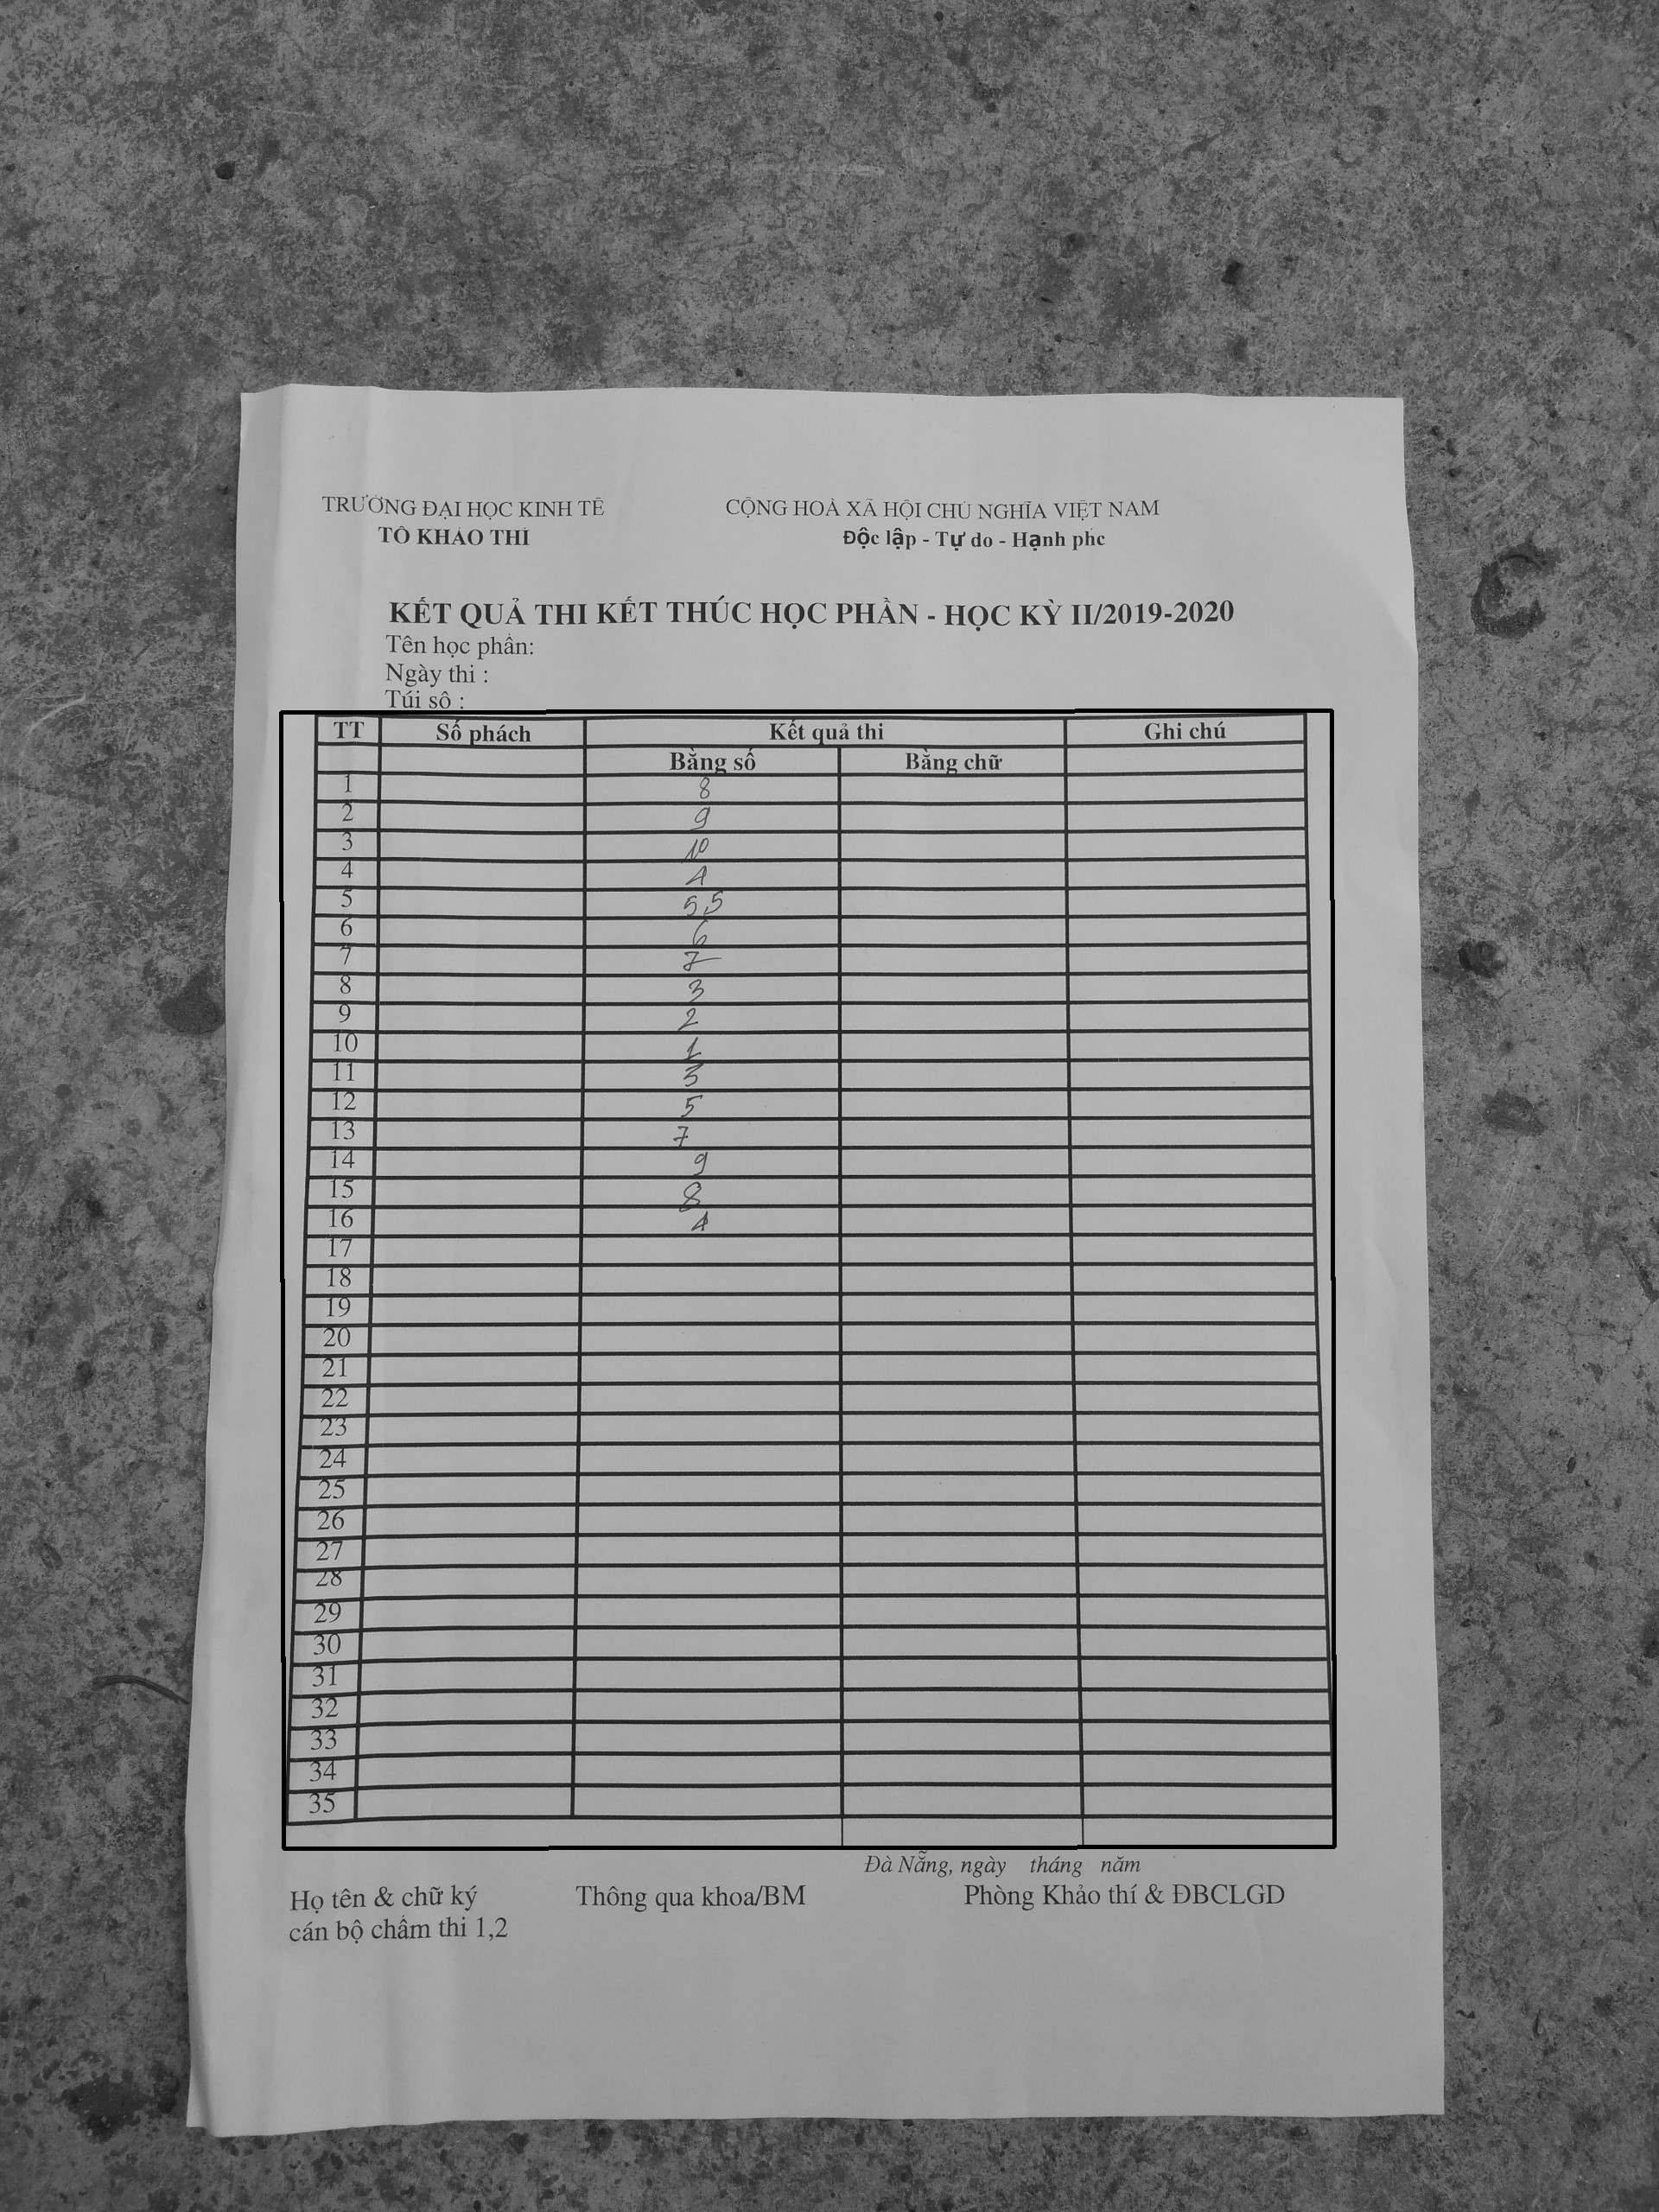 TRƯỜNG ĐẠI HỌC KINH TẾ CỘNG HOÀ XÃ HỘI CHỦ NGHĨA VIỆT NAM
TỔ KHẢO THÍ Độc lập - Tự do - Hạnh phc
KẾT QUẢ THI KẾT THÚC HỌC PHẦN - HỌC KỲ II/2019-2020
Tên học phần:
Ngày thi :
Túi số :
TT Số phách Kết quả thi Ghi chú
Bằng số Bằng chữ
1 8
2 9
3 10
4 4
5 5,5
6 6
7 7
8 3
9 2
10 1
11 3
12 5
13 7
14 9
15 8
16 4
17
18
19
20
21
22
23
24
25
26
27
28
29
30
31
32
33
34
35
Đà Nẵng, ngày tháng năm
Họ tên & chữ ký Thông qua khoa/BM Phòng Khảo thí & ĐBCLGD
cán bộ chấm thi 1,2